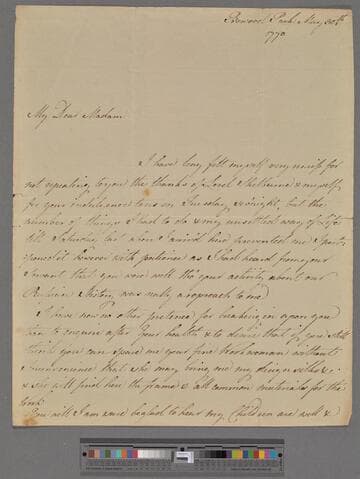 Bowood Park Aug 30th
1770
My Dear Madam
I have long felt myself very uneasy for
not repeating to you the thanks of Lord Shelburne & myself
for your indulgence to us on Tuesday sevnight, but the
number of things I had to do & my unsettled way of Life
till Saturday last when I arriv'd here prevented me I post-
pone'd it however with patience as I had heard from your
Servant that you were well tho' your activity about our
History was really a reproach to me
I have now no other pretence for breaking in upon you
than to enquire after your health & to desire that if you still
think you can spare me your fine Workwoman without
Inconvenience that she may bring me my design with her
& she will find here the frame & all common materials for the
Work
You will I am sure be glad to hear my Children are well &